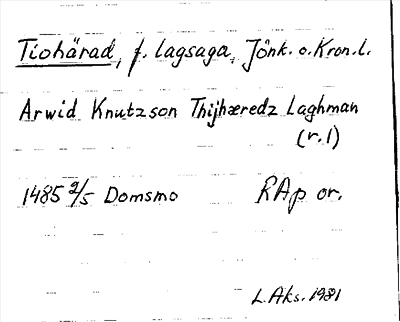 Tiohärad, f. lagsaga, Jönk. o. Kron. l.
Arwid Knutzson Thijhæredz Laghman
(r. 1)
1485 2/5 Domsmo RAp or.
L. Aks. 1981